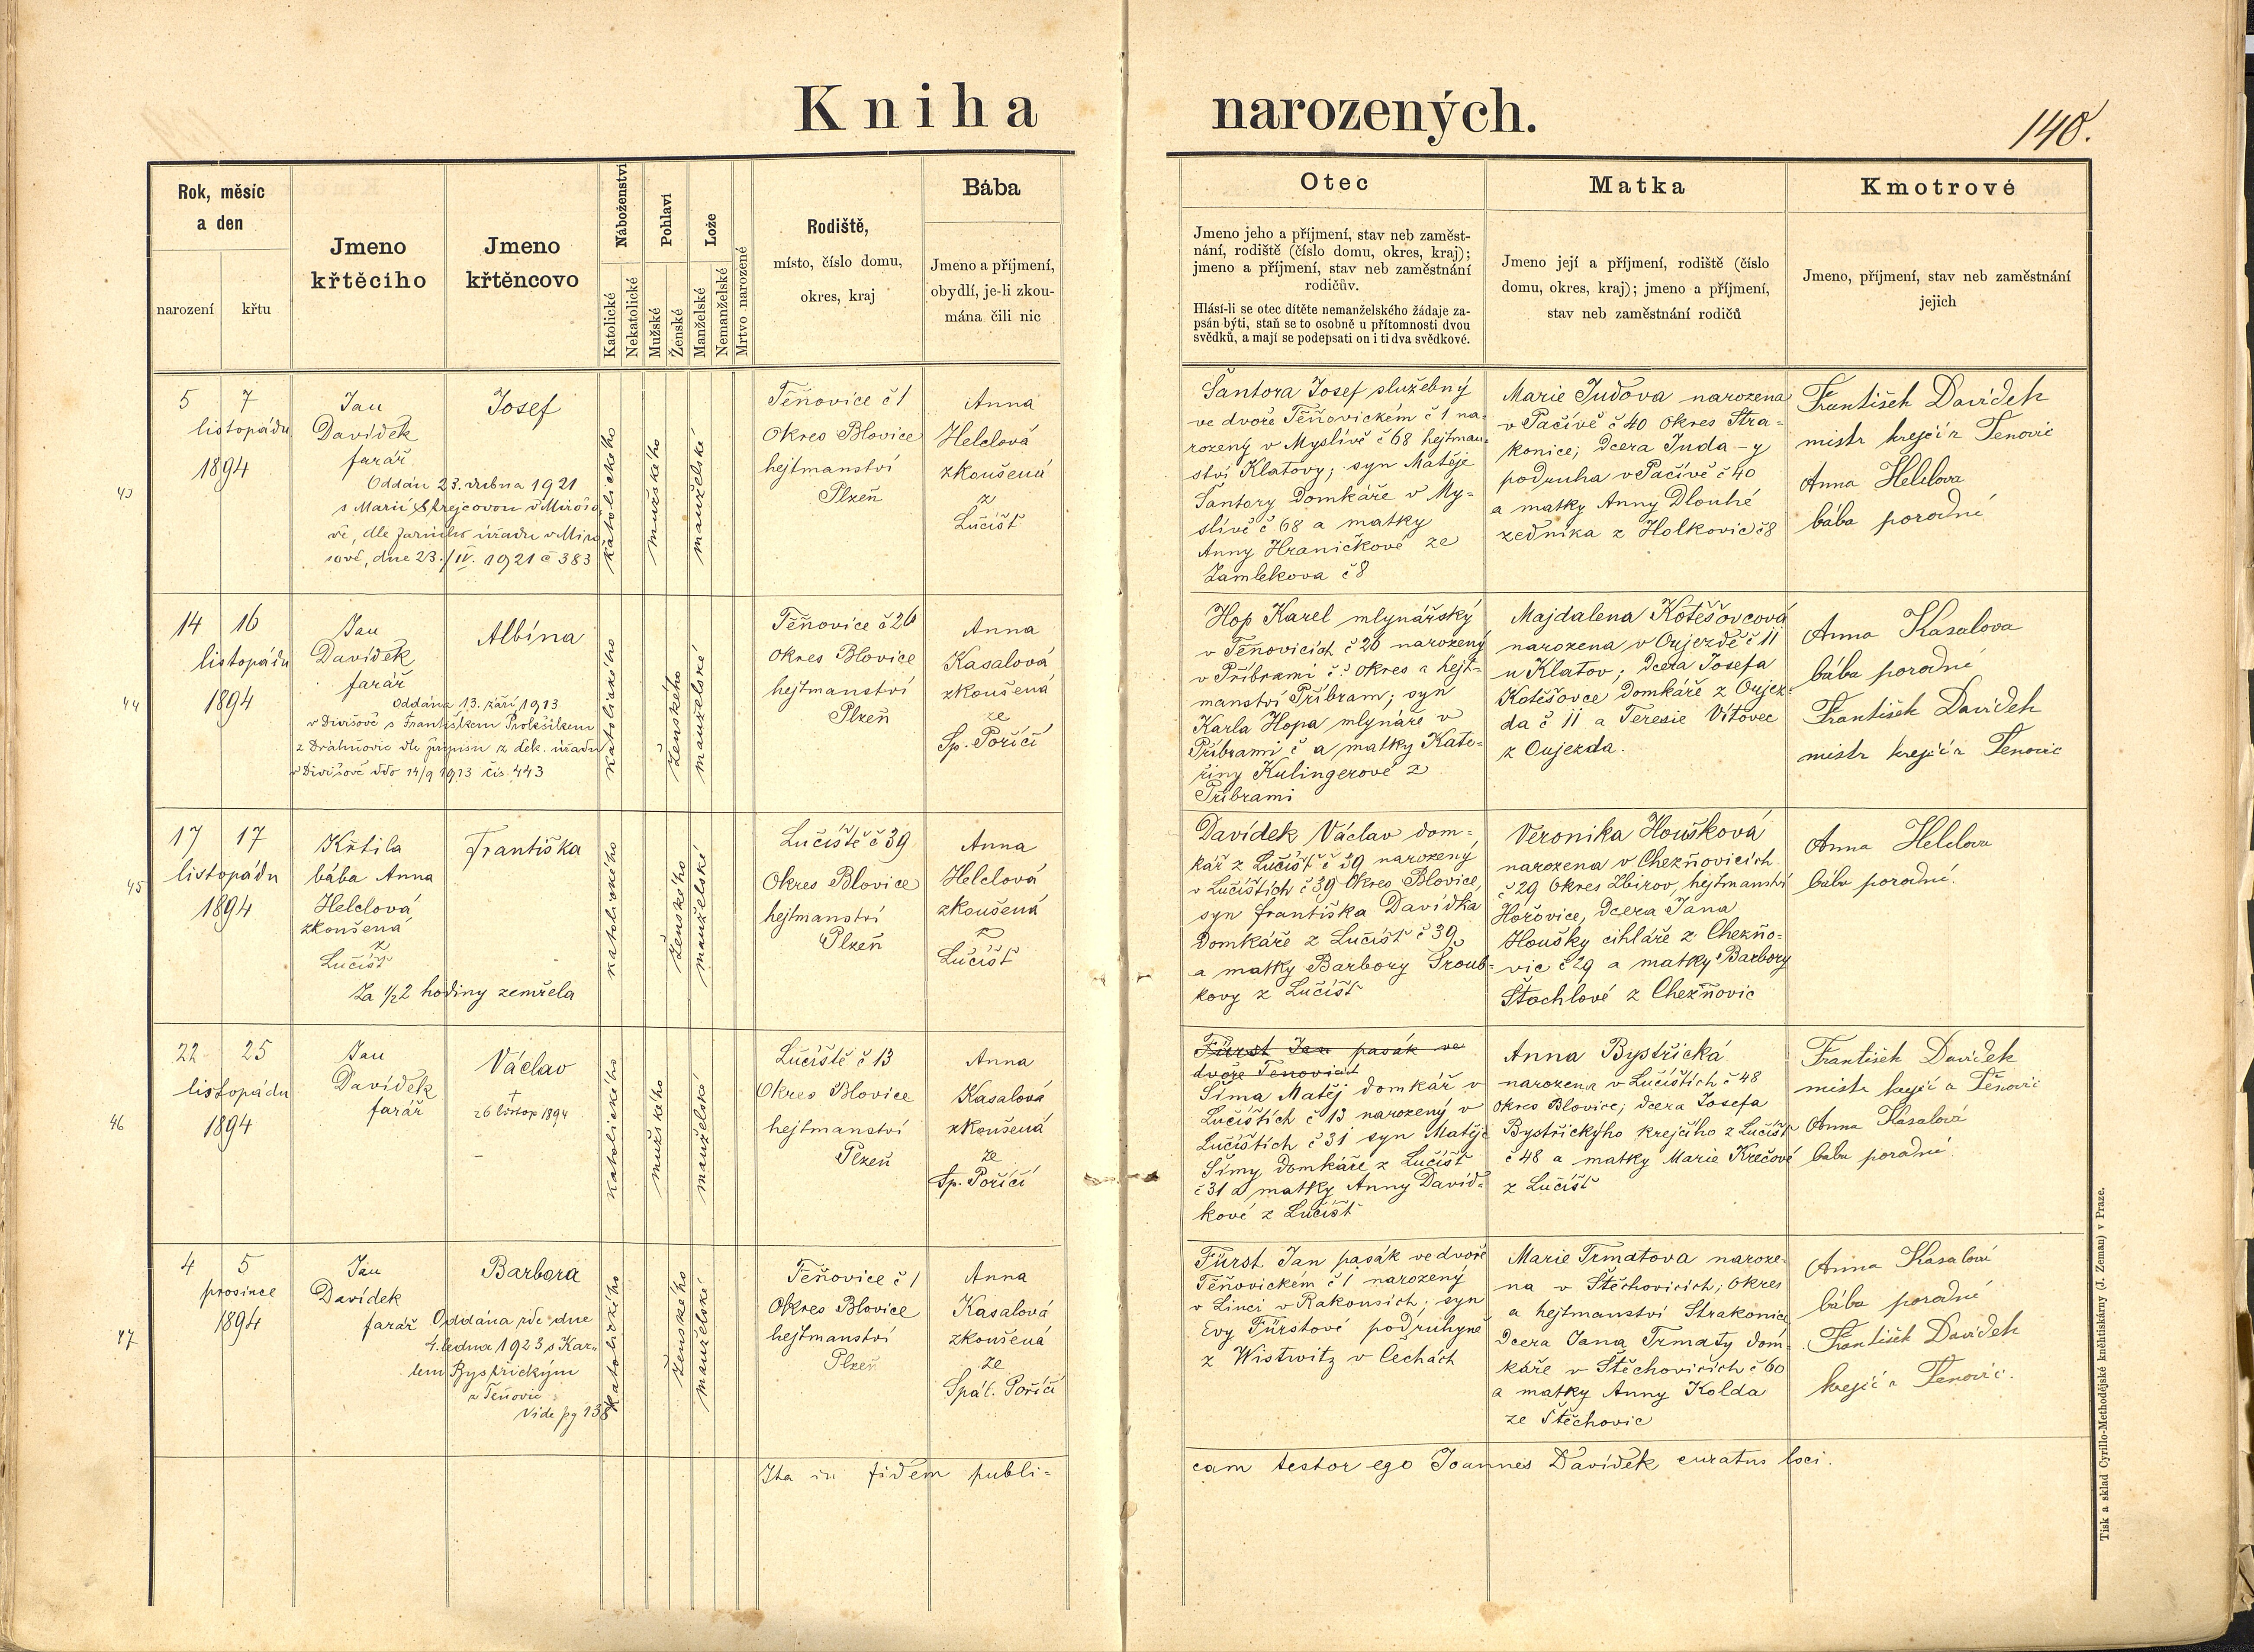 Kniha narozených.
140.
Rok, měsíc
a den
narození
křtu
Jmeno
křtěcího
Jmeno
křtěncovo
Náboženství
Katolické
Nekatolické
Pohlaví
Mužské
Ženské
Lože
Manželské
Nemanželské
Mrtvo narozené
Rodiště,
místo, číslo domu,
okres, kraj
Bába
Jmeno a příjmení,
obydlí, je-li zkou-
mána čili nic
Otec
Jmeno jeho a příjmení, stav neb zaměst-
nání, rodiště (číslo domu, okres, kraj);
jmeno a příjmení, stav neb zaměstnání
rodičův.
Hlásí-li se otec dítěte nemanželského žádaje za-
psán býti, staň se to osobně u přítomnosti dvou
svědků, a mají se podepsati on i ti dva svědkové.
Matka
Jmeno její a příjmení, rodiště (číslo
domu, okres, kraj); jmeno a příjmení,
stav neb zaměstnání rodičů
Kmotrové
Jmeno, příjmení, stav neb zaměstnání
jejich
43
5 7
listopádu
1894
Jan
Davídek
farář
Josef
Oddán 23. dubna 1921
s Marií Strejcovou v Mirošo-
vě, dle farního úřadu v Miro-
šově, dne 23./IV. 1921 č 383
katolického
mužského
manželské
Těňovice č 1
Okres Blovice
hejtmanství
Plzeň
Anna
Helclová
zkoušená
z
Lučišť
Šantora Josef služebný
ve dvoře Těňovickém č 1 na-
rozený v Myslivě č 68 hejtman-
ství Klatovy; syn Matěje
Šantory domkáře v My-
slívě č 68 a matky
Anny Hraničkové ze
Zamlekova č 8
Marie Judova narozena
v Pačívě č 40 okres Stra-
konice; dcera Juda-y
podruha v Pačívě č 40
a matky Anny Dlouhé
zedníka z Holkovic č 8
František Davídek
mistr krejčí z Tenovic
Anna Helclova
bába porodné
44
14 16
listopádu
1894
Jan
Davídek
farář
Albína
Oddána 13. září 1913
v Divišově s Františkem Prokšíkem
z Dráhňovic dle přípisu z děk. úřadu
v Divišově ddo 14/9 1913 čís. 443
katolického
ženského
manželské
Těňovice č 26
okres Blovice
hejtmanství
Plzeň
Anna
Kasalová
zkoušená
ze
Sp. Poříčí
Hop Karel mlynářský
v Těnovicích č 26 narozený
v Příbrami č ? okres a hejt-
manství Příbram; syn
Karla Hopa mlynáře v
Příbrami č a matky Kate-
řiny Kulingerové z
Příbrami
Majdalena Kotěšovcová
narozena v Oujezdě č 11
u Klatov; dcera Josefa
Kotěšovce domkáře z Oujez-
da č 11 a Teresie Vítovec
z Oujezda.
Anna Kasalova
bába porodné
František Davídek
mistr krejčí z Tenovic
45
17 17
listopádu
1894
Křtila
bába Anna
Helclová
zkoušená
z
Lučišť
Františka
Za 1/22 hodiny zemřela
katolického
ženského
manželské
Lučiště č 39
Okres Blovice
hejtmanství
Plzeň
Anna
Helclová
zkoušená
z
Lučišť
Davídek Václav dom-
kář z Lučišť č 39 narozený
v Lučištích č 39 Okres Blovice,
syn Františka Davídka
domkáře z Lučišť č 39
a matky Barbory Šroub-
kovy z Lučišť
Veronika Houšková
narozena v Chezňovicích
č 29 Okres Zbirov, hejtmanství
Hořovice, dcera Jana
Houšky cihláře z Chezňo-
vic č 29 a matky Barbory
Štochlové z Chezňovic
Anna Helclova
bába porodné.
46
22 25
listopádu
1894
Jan
Davídek
farář
Václav
†
26 listop 1894
katolického
mužského
manželské
Lučiště č 13
Okres Blovice
hejtmanství
Plzeň
Anna
Kasalová
zkoušená
ze
Sp. Poříčí
Fürst Jan pasák ve
dvoře Tenovicích
Šíma Matěj domkář v
Lučištích č 13 narozený v
Lučištích č 31 syn Matěje
Šímy domkáře z Lučišť
č 31 a matky Anny Davíd-
kové z Lučišť
Anna Bystřická
narozena v Lučištích č 48
okres Blovice; dcera Josefa
Bystřickýho krejčího z Lučišť
č 48 a matky Marie Krečové
z Lučišť
František Davídek
mistr krejčí z Těnovic
Anna Kasalová
bába porodné.
47
4 5
prosince
1894
Jan
Davídek
farář
Barbora
Oddána zde dne
4. ledna 1923 s Kar-
lem Bystřickým
z Těňovic
Vide pg 138
katolického
ženského
manželské
Těňovice č 1
Okres Blovice
hejtmanství
Plzeň
Anna
Kasalová
zkoušená
ze
Spál. Poříčí
Fürst Jan pasák ve dvoře
Těňovickém č 1 narozený
v Linci v Rakousích; syn
Evy Fürstové podruhyně
z Wistwitz v Čechách
Marie Trmatova naroze-
na v Štěchovicích; okres
a hejtmanství Strakonice
dcera Jana Trmaty dom-
káře v Štěchovicích č 60
a matky Anny Kolda
ze Štěchovic
Anna Kasalová
bába porodné
František Davídek
krejčí z Tenovic.
Ita in fidem publi-
cam testor ego Joannes Davídek curatus loci.
Tisk a sklad Cyrillo-Methodějské knihtiskárny (J. Zeman) v Praze.